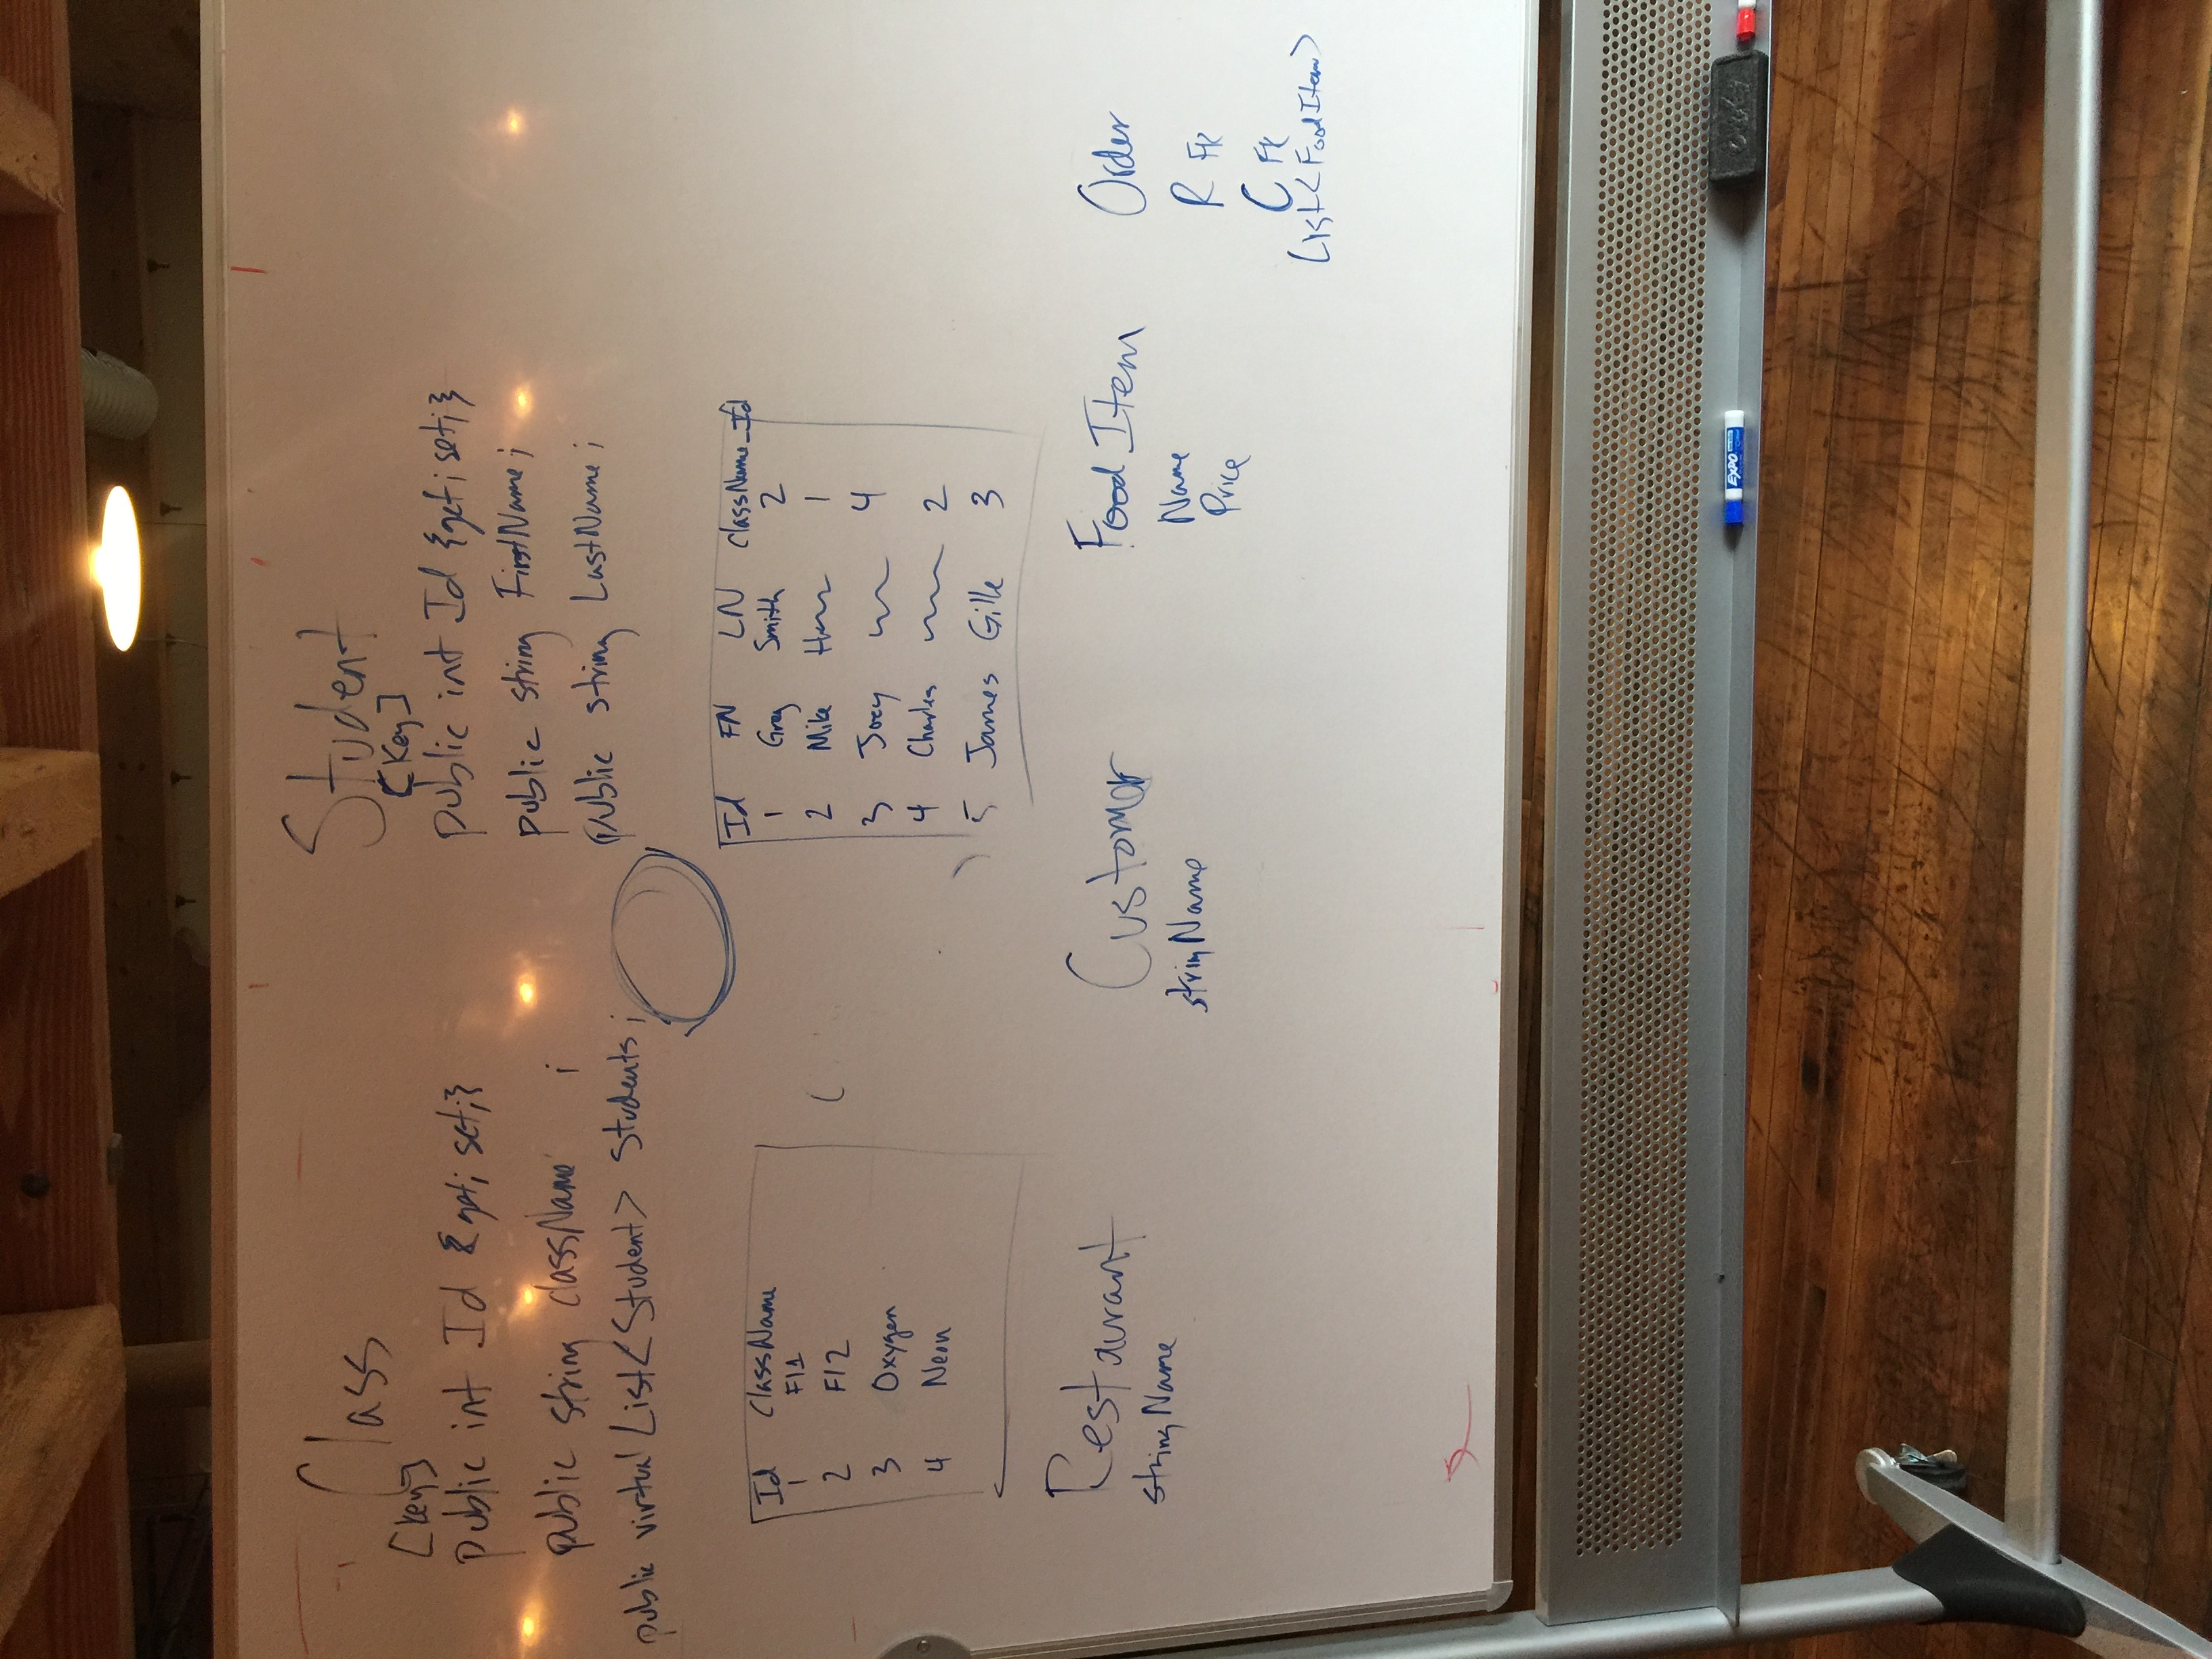 Class
[Key]
public int Id {get; set;}
public string className ;
public virtual List<Student> Students;
Student
[Key]
public int Id {get; set;}
public string FirstName;
public string LastName;
Id ClassName
1 F11
2 F12
3 Oxygen
4 Neon
Id FN LN ClassName_Id
1 Greg Smith 2
2 Mike 1
3 Joey 4
4 Charles 2
5 James Gille 3
Restaurant
string Name
Customer
string Name
Food Item
Name
Price
Order
R FK
C FK
List<FoodItem>
EXPO